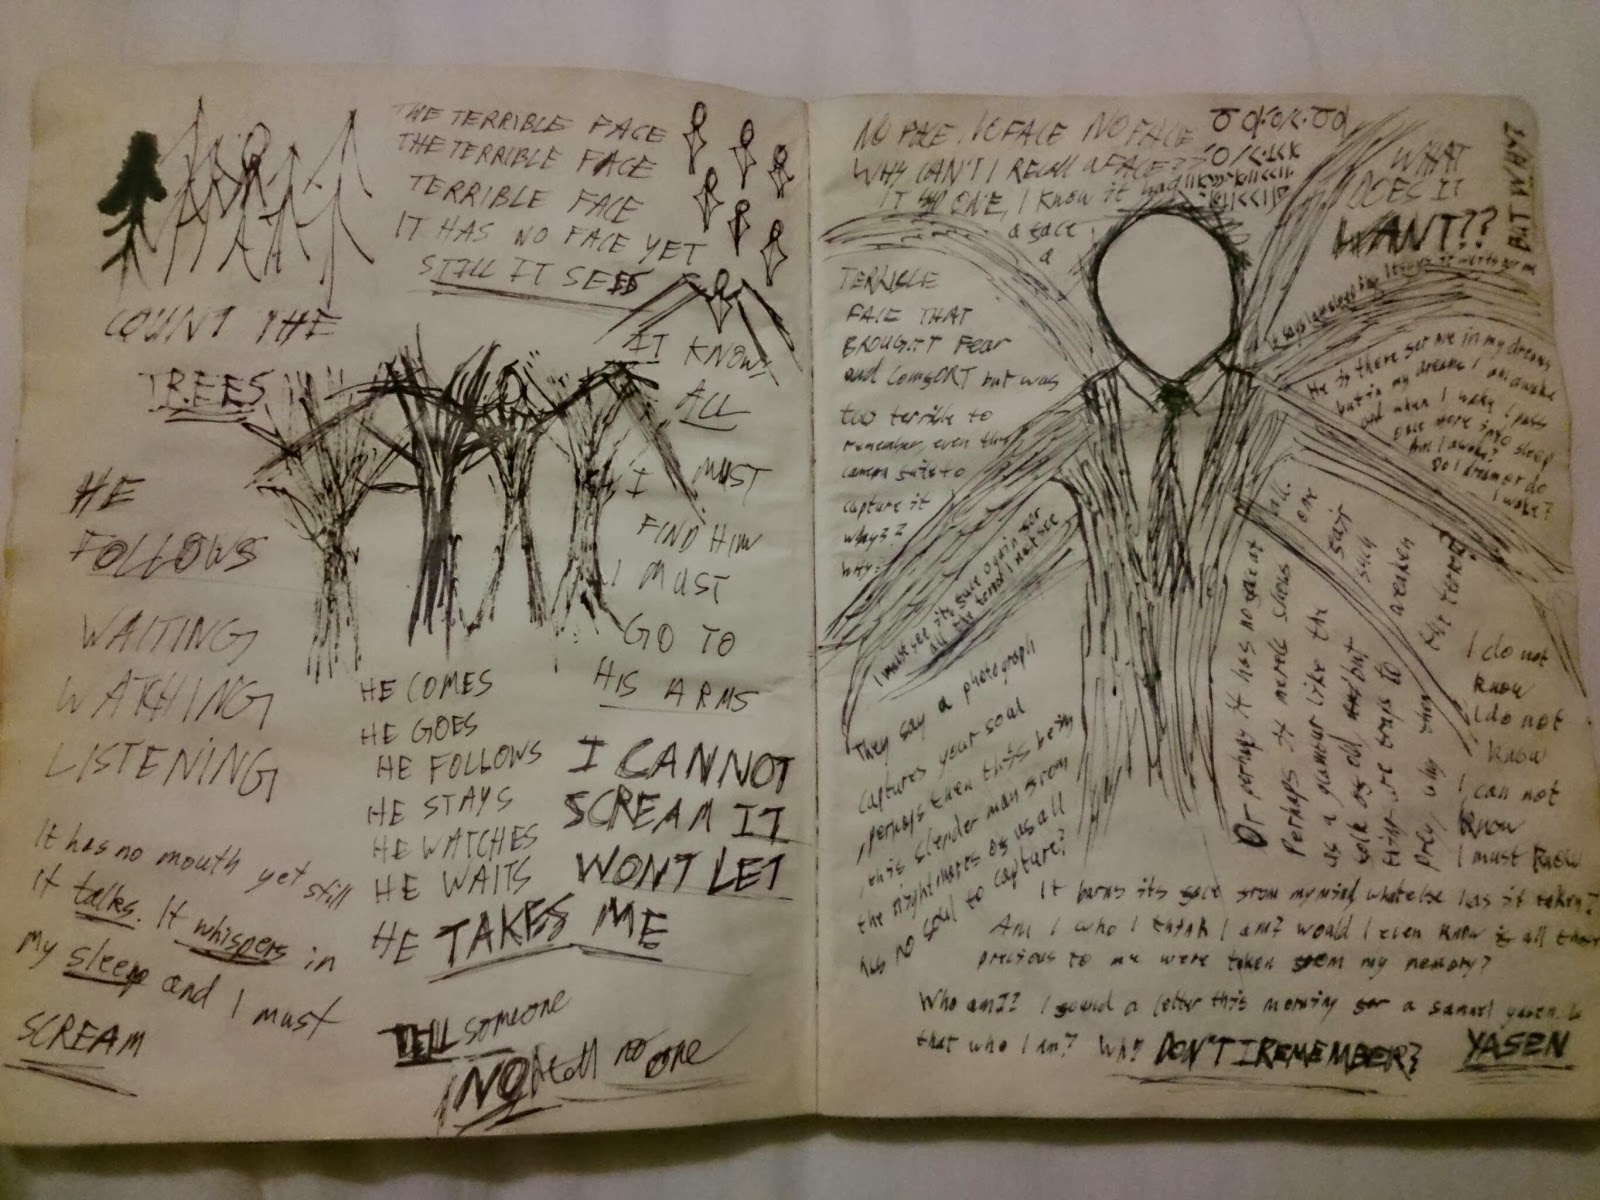 THE TERRIBLE FACE
THE TERRIBLE FACE
TERRIBLE FACE
IT HAS NO FACE YET
STILL IT SEES
COUNT THE
TREES
IT KNOWS
ALL
I MUST
FIND HIM
I MUST
GO TO
HIS ARMS
HE
FOLLOWS
WAITING
WATCHING
LISTENING
It has no mouth yet still
it talks. It whispers in
my sleep and I must
SCREAM
HE COMES
HE GOES
HE FOLLOWS
HE STAYS
HE WATCHES
HE WAITS
HE TAKES ME
I CANNOT
SCREAM IT
WONT LET
TELL someone
NO tell no one
NO FACE NO FACE NO FACE
WHY CAN'T I RECALL A FACE?
IT ONE, I know it had
a face
a
TERRIBLE
FACE THAT
BROUGHT Fear
and comfort but was
too terrible to
remember, even the
camera fails to
capture it
why??
why?
I must see its face again for
all the terror I must see
They say a photograph
captures your soul
perhaps then this being
this slender man from
the nightmares of us all
has no soul to capture?
WHAT
DOES IT
WANT??
BUT WHAT
He is there for me in my dreams
but in my dreams I am awake
and when I wake I pass
once more into sleep
Am I awake?
Do I dream or do
I wake?
Or perhaps it has no face at all.
Perhaps it merely shows one
as a glamour like the fair
folk of old but such
traps to awaken
prey, why then the terror?
I do not
know
I do not
know
I can not
know
I must know
It burns its face from my mind, what else has it taken?
Am I who I think I am? would I even know if all those
precious to me were taken from my memory?
Who am I? I found a letter this morning for a samuel yasen. Is
that who I am? Why DON'T I REMEMBER? YASEN